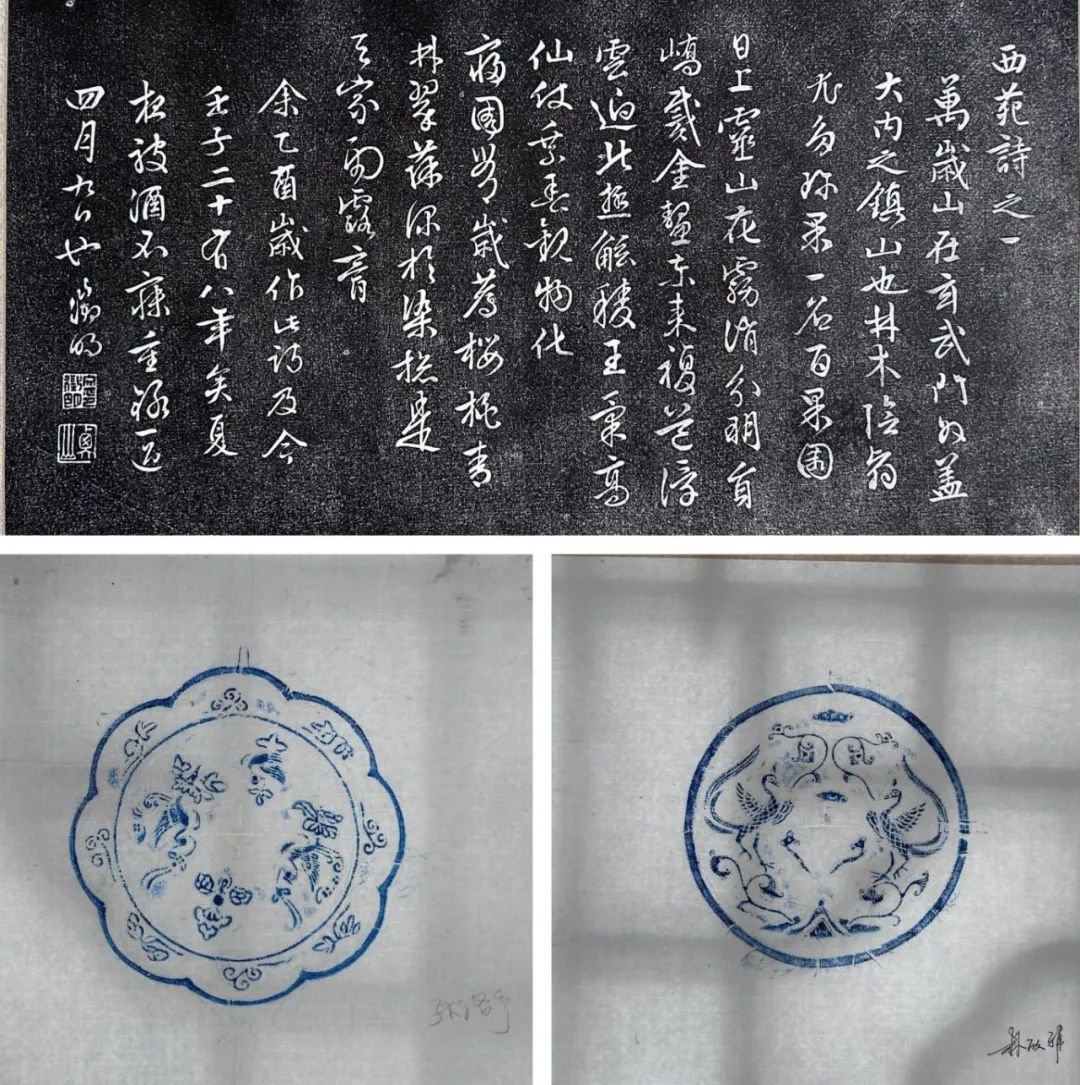 西苑詩之一
萬歲山在玄武門外蓋
大内之鎮山也林木陰翳
尤多珍果一名百果園
日上靈山花霧消分明員
嶠戴金鰲東来複道浮
雲迥北極觚稜王氣高
仙仗乘春觀物化
寢園常歲薦櫻桃青
林翠葆深於染揔是
天家雨露膏
余乙酉歲作此詩及今
壬子二十有八年矣夏
夜被酒不寐重録一過
四月九日也徵明